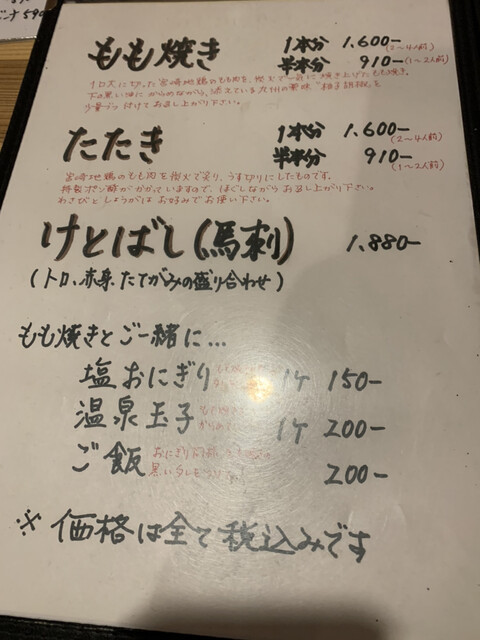 もも焼き 1本分 1.600- (2〜4人前)
半本分 910- (1〜2人前)
1口大に切った宮崎地鶏のもも肉を、炭火で一気に焼き上げたもも焼き。
下の黒い油にからめながら、添えている九州の薬味"柚子胡椒"を
少量ずつ付けてお召し上がり下さい。
たたき 1本分 1.600- (2〜4人前)
半本分 910- (1〜2人前)
宮崎地鶏のもも肉を炭火で炙り、うす切りにしたものです。
特製ポン酢がかかっていますので、ほぐしながらお召し上がり下さい。
わさびとしょうがはお好みでお使い下さい。
けとばし(馬刺) 1.880-
(トロ、赤身、たてがみの盛り合わせ)
もも焼きとご一緒に...
塩おにぎり 1ケ 150-
温泉玉子 1ケ 200-
ご飯 おにぎり同様 200-
※ 価格は全て税込みです